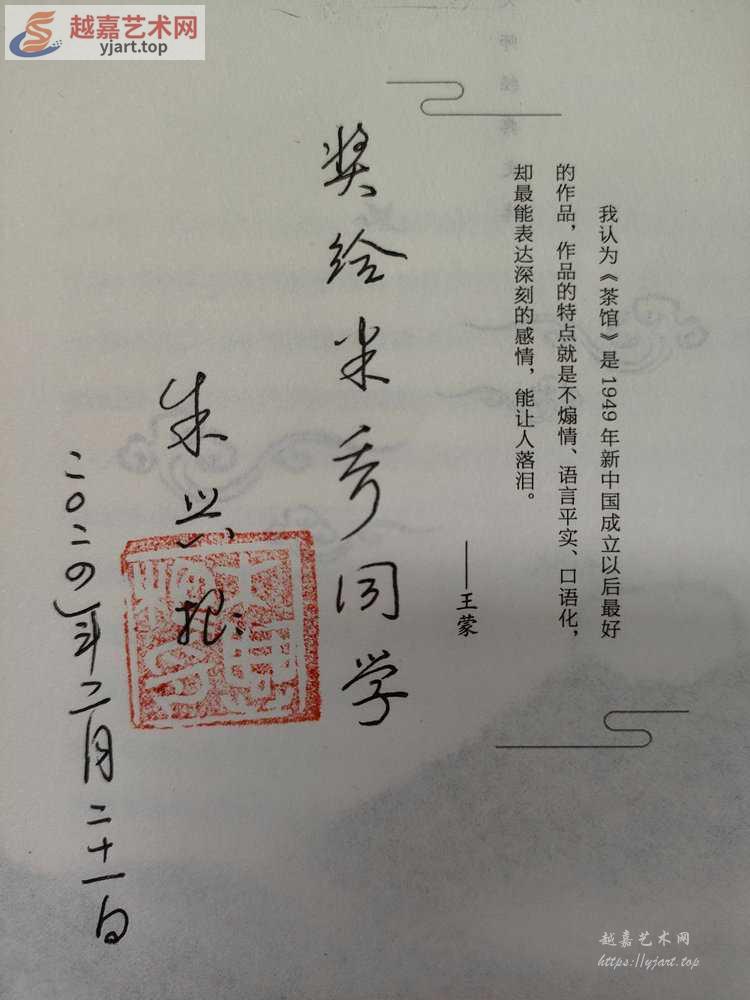 越嘉艺术网
yjart.top
我认为《茶馆》是1949年新中国成立以后最好
的作品，作品的特点就是不煽情、语言平实、口语化，
却最能表达深刻的感情，能让人落泪。
——王蒙
奖给米秀同学
朱兴根
二〇二四年二月二十一日
越嘉艺术网
https://yjart.top